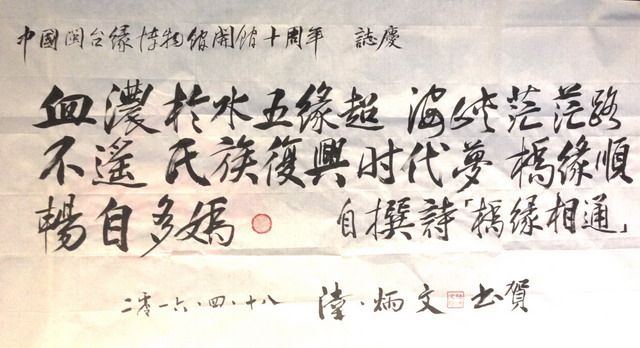 中國闽台缘博物館開館十周年 誌慶
血濃於水五缘超 海峡茫茫路
不遥 民族復興时代夢 橋緣順
暢自多嫣 自撰詩「橋缘相通」
二零一六·四·十八 陸·炳文 书賀